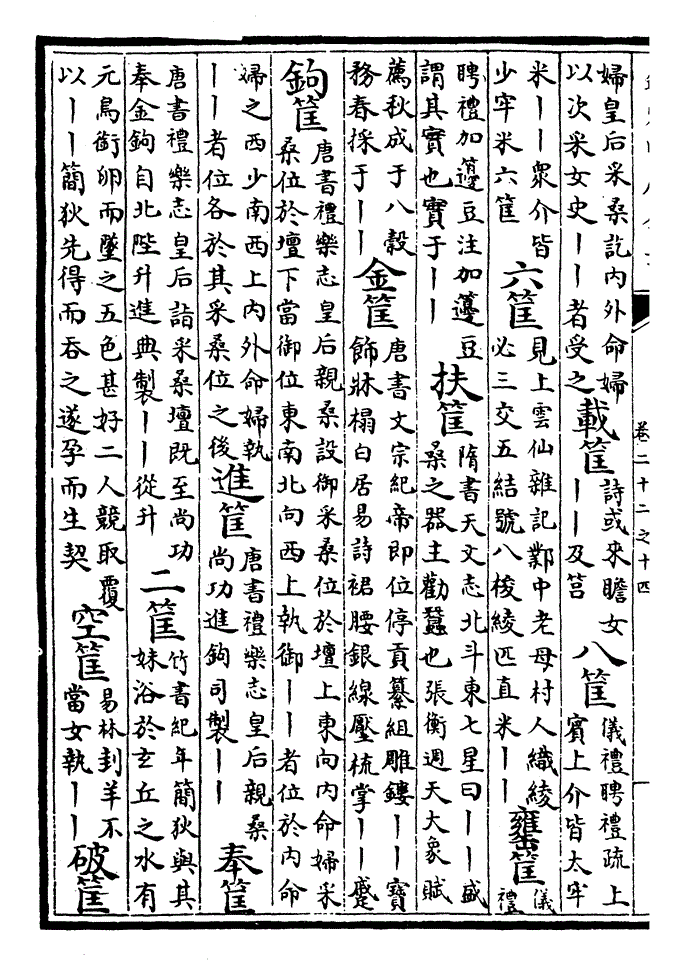 婦皇后采桑訖内外命婦
以次采女史丨丨者受之
載筐
詩或來瞻女
丨丨及筥
八筐
儀禮聘禮疏上
賓上介皆太牢
米丨丨衆介皆
少牢米六筐
六筐
見上雲仙雜記鄴中老母村人織綾
必三交五結號八梭綾匹直米丨丨
罋筐
儀
禮
聘禮加籩豆注加籩豆
謂其實也實于丨丨
扶筐
隋書天文志北斗東七星曰丨丨盛
桑之器主勸蠶也張衡週天大象賦
薦秋成于八穀
務春採于丨丨
金筐
唐書文宗紀帝即位停貢纂組雕鏤丨丨寶
飾牀榻白居易詩裙腰銀線壓梳掌丨丨蹙
鉤筐
唐書禮樂志皇后親桑設御采桑位於壇上東向内命婦采
桑位於壇下當御位東南北向西上執御丨丨者位於内命
婦之西少南西上内外命婦執
丨丨者位各於其采桑位之後
進筐
唐書禮樂志皇后親桑
尚功進鉤司製丨丨
奉筐
唐書禮樂志皇后詣采桑壇既至尚功
奉金鉤自北陛升進典製丨丨從升
二筐
竹書紀年簡狄與其
妹浴於玄丘之水有
元鳥銜卵而墜之五色甚好二人競取覆
以丨丨簡狄先得而吞之遂孕而生契
空筐
易林刲羊不
當女執丨丨
破筐
卷二十二之十四